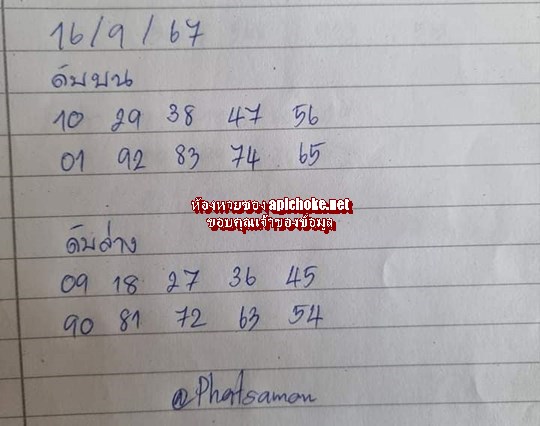 16/9/67
ดับบน
10 29 38 47 56
01 92 83 74 65
ห้องหวยซอง apichoke.net
ขอบคุณเจ้าของข้อมูล
ดับล่าง
09 18 27 36 45
90 81 72 63 54
@Phatsamon